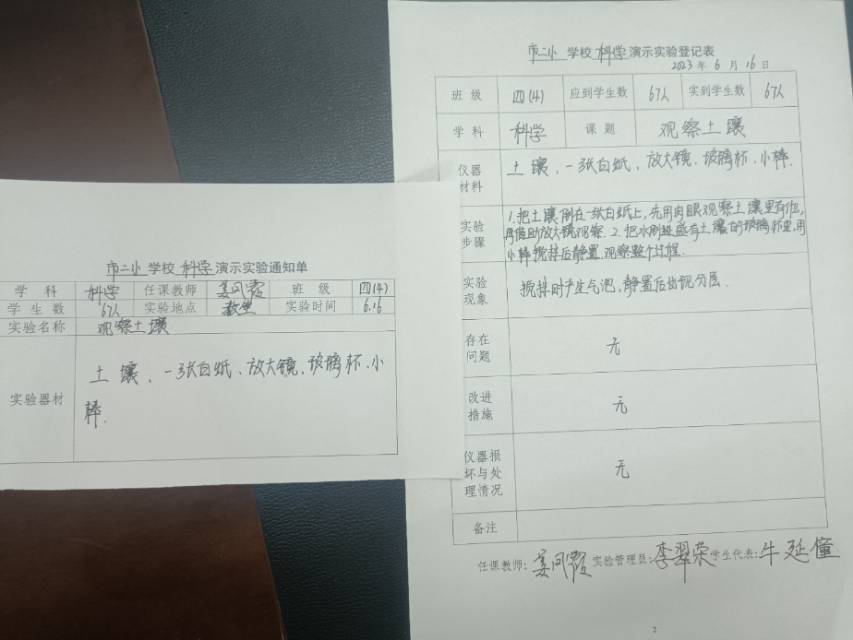 市二小 学校 科学 演示实验通知单
学科 科学 任课教师 班级 四(4)
学生数 67人 实验地点 教室 实验时间 6.16
实验名称 观察土壤
实验器材 土壤、一张白纸、放大镜、玻璃杯、小
棒.
市二小 学校 科学 演示实验登记表
2023年 6 月 16 日
班级 四(4) 应到学生数 67人 实到学生数 67人
学科 科学 课题 观察土壤
仪器
材料
土壤、一张白纸、放大镜、玻璃杯、小棒.
实验
步骤
1.把土壤倒在一张白纸上,先用肉眼观察土壤里有什么,
再借助放大镜观察.2.把水倒进盛有土壤的玻璃杯里,用
小棒搅拌后静置.观察整个过程.
实验
现象
搅拌时产生气泡,静置后出现分层.
存在
问题
无
改进
措施
无
仪器损
坏与处
理情况
无
备注
任课教师: 实验管理员:李翠荣 学生代表:牛延僮
2